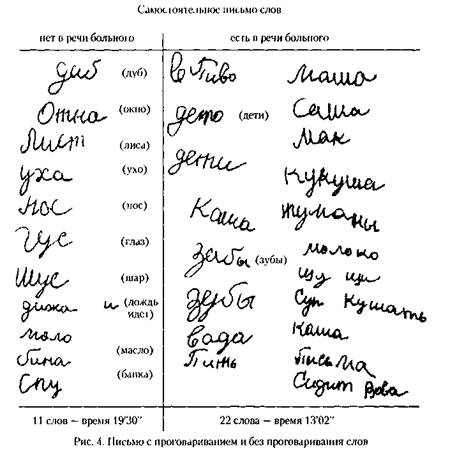 Самостоятельное письмо слов
нет в речи больного
есть в речи больного
диб (дуб)
Отна (окно)
Лист (лиса)
уха (ухо)
нос (нос)
Гус (глаз)
Шус (шар)
дижа и (дождь идет)
моло (масло)
бина (банка)
Спу
11 слов – время 19'30"
Пиво
дето (дети)
дети
Каша
забы (зубы)
зубы
вада
Пить
маша
Саша
мак
кукуша
молоко
щу щи
Суп кушать
каша
Письма
Сидит Вова
22 слова – время 13'02"
Рис. 4. Письмо с проговариванием и без проговаривания слов